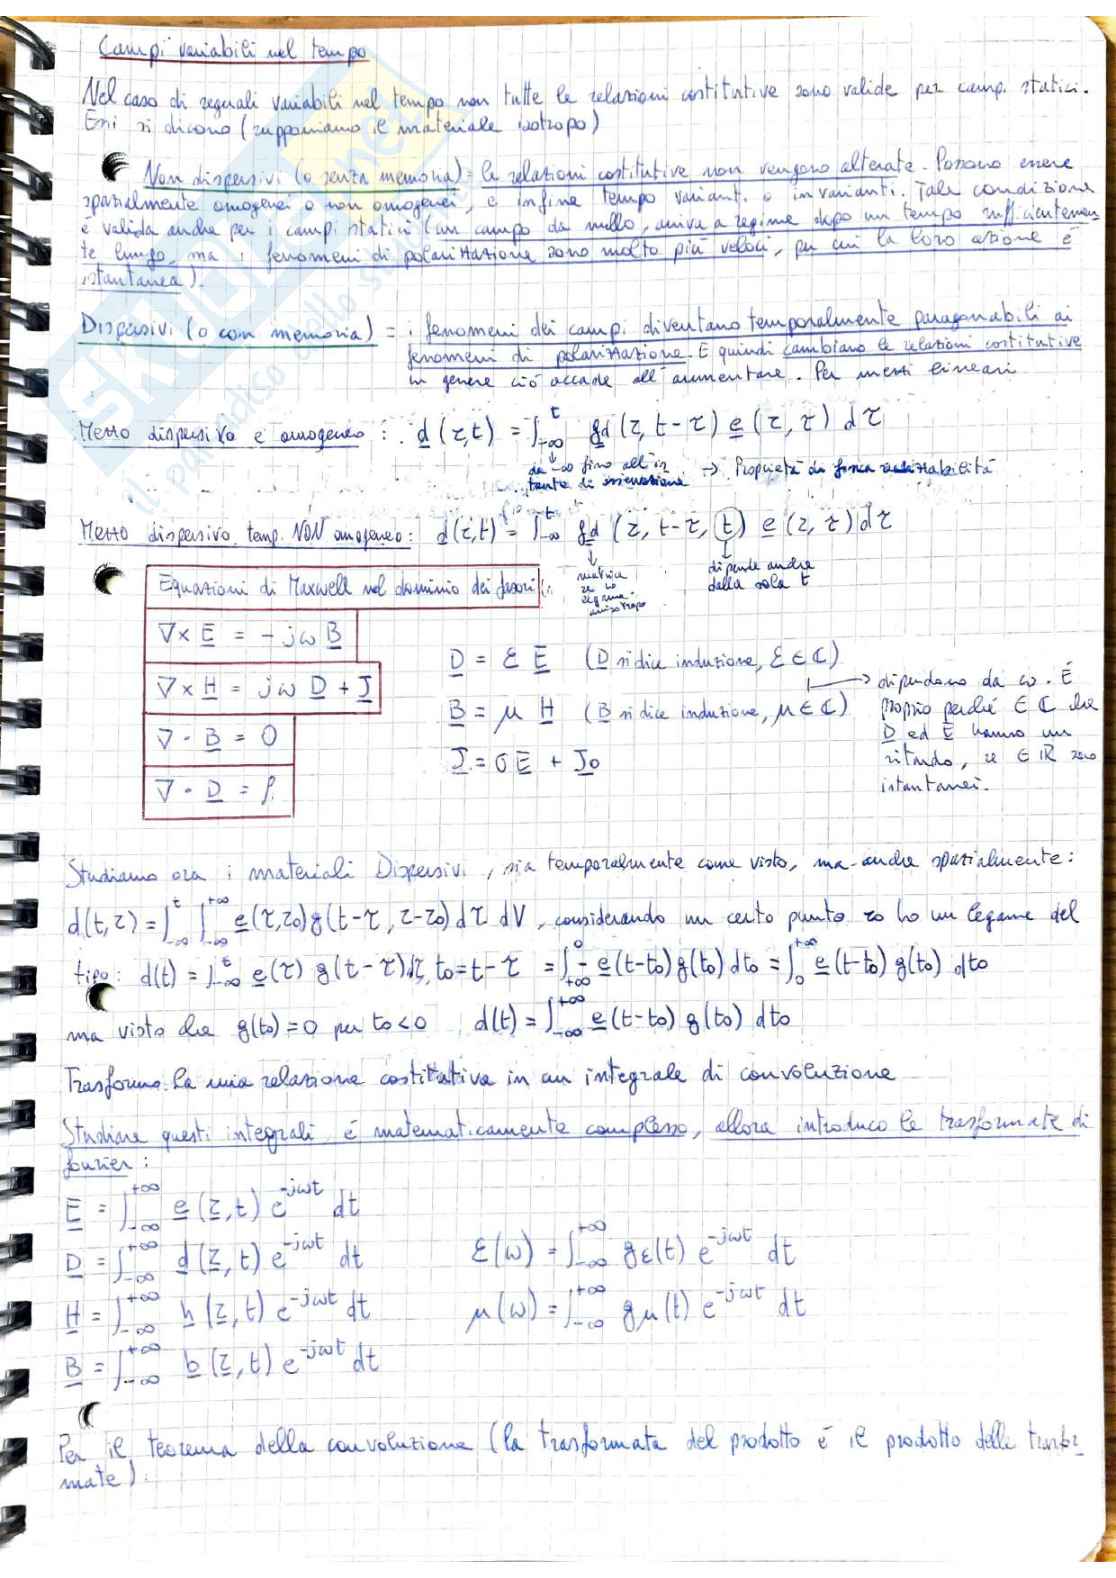 Campi variabili nel tempo
Nel caso di segnali variabili nel tempo non tutte le relazioni costitutive sono valide per campi statici.
Essi si dicono (supponiamo il materiale isotropo)
Non dispersivi (o senza memoria) = le relazioni costitutive non vengono alterate. Possono essere
spazialmente omogenei o non omogenei, e infine tempo varianti o invarianti. Tale condizione
è valida anche per i campi statici (un campo da nullo, arriva a regime dopo un tempo sufficientemen
te lungo, ma i fenomeni di polarizzazione sono molto più veloci, per cui la loro azione è
istantanea).
Dispersivi (o con memoria) = i fenomeni dei campi diventano temporalmente paragonabili ai
fenomeni di polarizzazione. E quindi cambiano le relazioni costitutive
in genere ciò accade all'aumentare. Per mezzi lineari
Mezzo dispersivo e omogeneo : d (r,t) = ∫_{-∞}^{t} gd (r, t-τ) e (r, τ) dτ
da -∞ fino all'is
tante di osservazione → Proprietà di fisica realizzabilità
Mezzo dispersivo temp. NON omogeneo: d(r,t) = ∫_{-∞}^{t} gd (r, t-τ, t) e (r, τ) dτ
matrice
se no
anisotropo
dipende anche
dalla sola t
Equazioni di Maxwell nel dominio dei fasori:
∇× E = -jω B
∇× H = jω D + J
∇ · B = 0
∇ · D = ρ
D = ε E (D si dice induzione, ε ∈ ℂ)
B = μ H (B si dice induzione, μ ∈ ℂ)
J = σE + J₀
→ dipendono da ω. È
proprio perché ∈ ℂ che
D ed E hanno un
ritardo, se ∈ ℝ sono
istantanei.
Studiamo ora i materiali Dispersivi, sia temporalmente come visto, ma anche spazialmente:
d(t,r) = ∫_{-∞}^{t} ∫_{-∞}^{+∞} e(τ,r₀)g(t-τ, r-r₀)dτ dV, considerando un certo punto r₀ ho un legame del
tipo: d(t) = ∫_{-∞}^{t} e(τ) g(t-τ)dτ, t₀=t-τ = ∫_{+∞}^{0} - e(t-t₀)g(t₀) dt₀ = ∫_{0}^{+∞} e(t-t₀) g(t₀) dt₀
ma visto che g(t₀)=0 per t₀<0 d(t) = ∫_{-∞}^{+∞} e(t-t₀) g(t₀) dt₀
Trasformo la mia relazione costitutiva in un integrale di convoluzione
Studiare questi integrali è matematicamente complesso, allora introduco le trasformate di
fourier:
E = ∫_{-∞}^{+∞} e (r,t) e^{-jωt} dt
D = ∫_{-∞}^{+∞} d(r,t) e^{-jωt} dt ε(ω) = ∫_{-∞}^{+∞} gε(t) e^{-jωt} dt
H = ∫_{-∞}^{+∞} h (r,t) e^{-jωt} dt μ(ω) = ∫_{-∞}^{+∞} gμ(t) e^{-jωt} dt
B = ∫_{-∞}^{+∞} b (r,t) e^{-jωt} dt
Per il teorema della convoluzione (la trasformata del prodotto è il prodotto delle trasfor
mate).